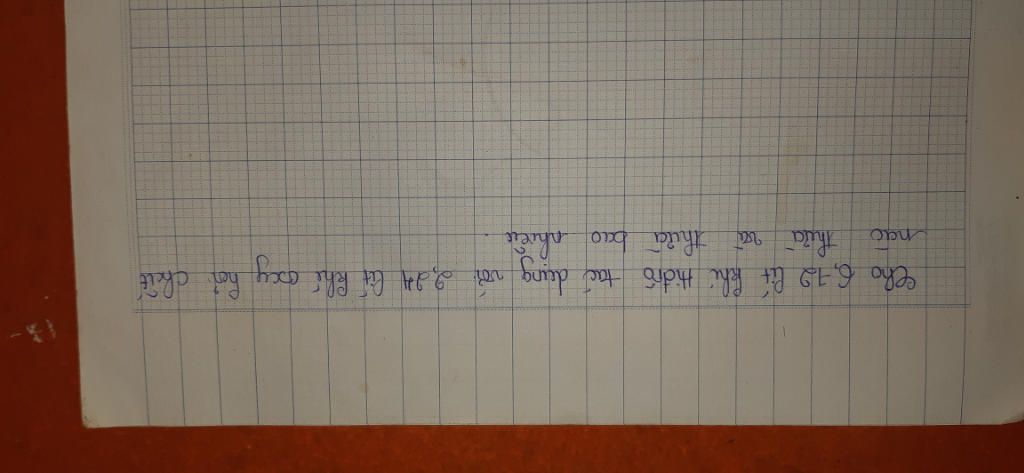 Cho 6,72 lít khí Hiđrô tác dụng với 2,24 lít khí oxy hỏi chất
nào thừa và thừa bao nhiêu.